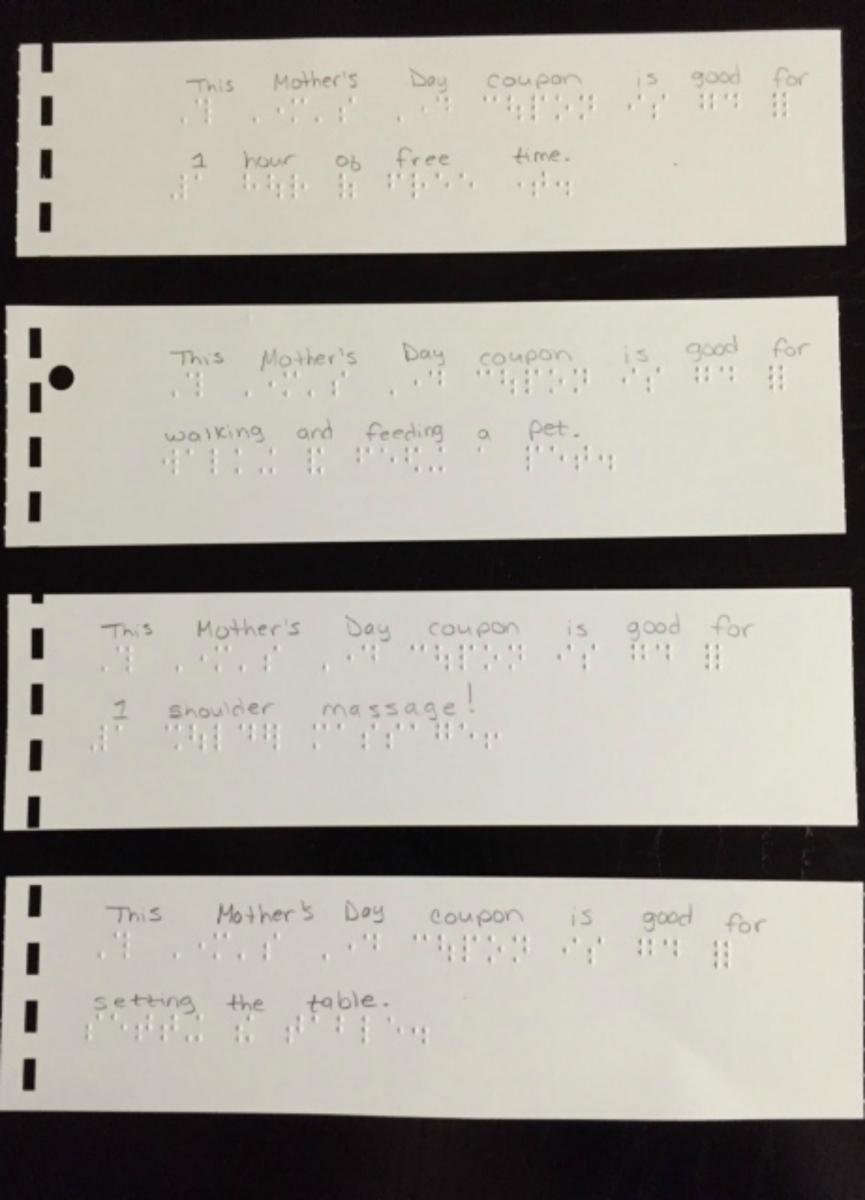 This Mother's Day coupon is good for
⠠⠹ ⠠⠐⠍⠄⠎ ⠠⠐⠙ ⠉⠳⠏⠕⠝ ⠊⠎ ⠛⠙ ⠿
1 hour of free time.
⠼⠁ ⠓⠳⠗ ⠷ ⠋⠗⠑⠑ ⠐⠞⠲
This Mother's Day coupon is good for
⠠⠹ ⠠⠐⠍⠄⠎ ⠠⠐⠙ ⠉⠳⠏⠕⠝ ⠊⠎ ⠛⠙ ⠿
walking and feeding a pet.
⠺⠁⠇⠅⠬ ⠯ ⠋⠑⠫⠬ ⠁ ⠏⠑⠞⠲
This Mother's Day coupon is good for
⠠⠹ ⠠⠐⠍⠄⠎ ⠠⠐⠙ ⠉⠳⠏⠕⠝ ⠊⠎ ⠛⠙ ⠿
1 shoulder massage!
⠼⠁ ⠩⠳⠇⠙⠻ ⠍⠁⠎⠎⠁⠛⠑⠖
This Mother's Day coupon is good for
⠠⠹ ⠠⠐⠍⠄⠎ ⠠⠐⠙ ⠉⠳⠏⠕⠝ ⠊⠎ ⠛⠙ ⠿
setting the table.
⠎⠑⠞⠞⠬ ⠮ ⠞⠁⠃⠇⠑⠲